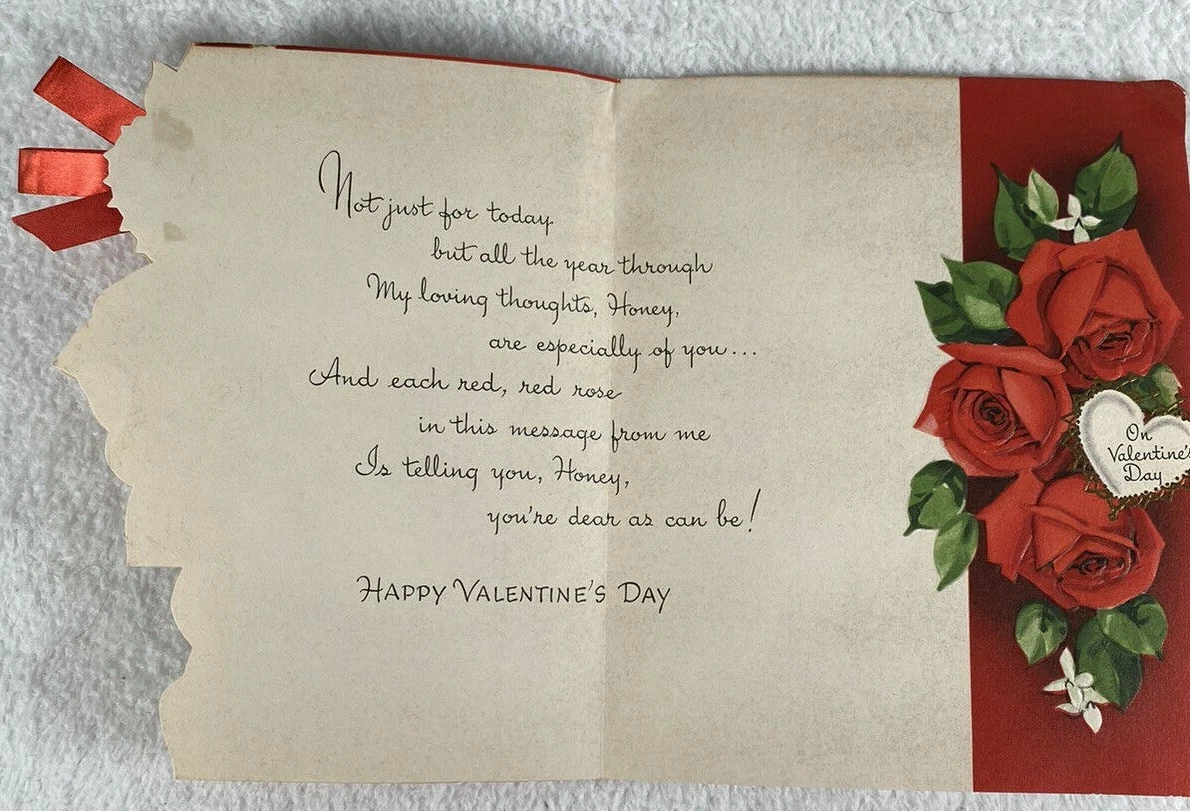 Not just for today
but all the year through
My loving thoughts, Honey,
are especially of you...
And each red, red rose
in this message from me
Is telling you, Honey,
you're dear as can be!
HAPPY VALENTINE'S DAY
On
Valentine's
Day